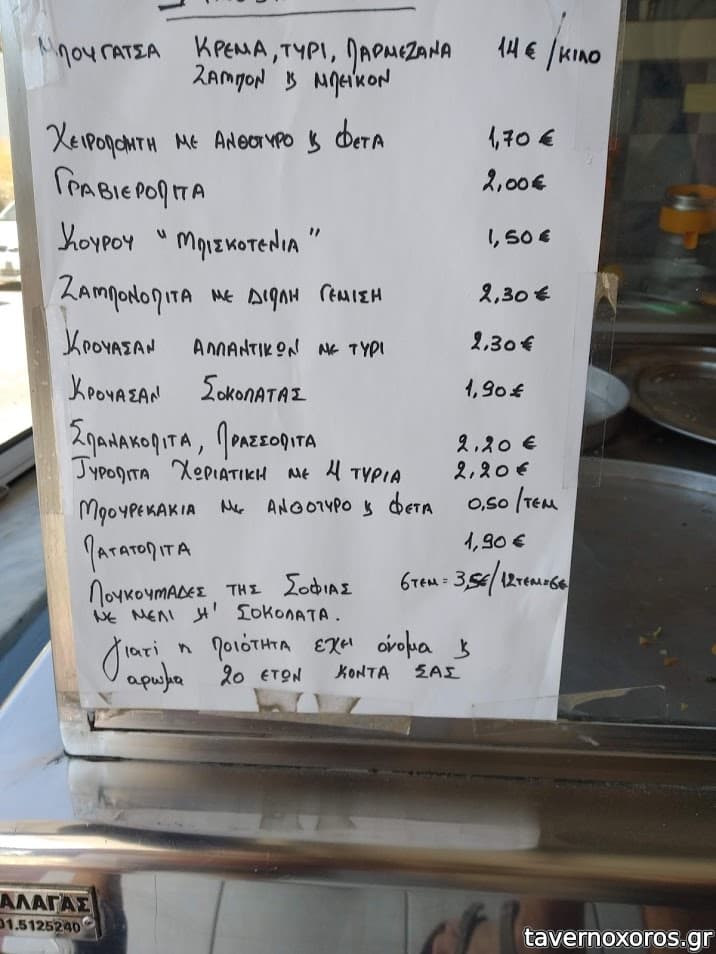 ΜΠΟΥΓΑΤΣΑ ΚΡΕΜΑ, ΤΥΡΙ, ΠΑΡΜΕΖΑΝΑ 14 € / ΚΙΛΟ
ΖΑΜΠΟΝ & ΜΠΕΙΚΟΝ
ΧΕΙΡΟΠΟΙΗΤΗ ΜΕ ΑΝΘΟΤΥΡΟ & ΦΕΤΑ 1,70 €
ΓΡΑΒΙΕΡΟΠΙΤΑ 2,00 €
ΚΟΥΡΟΥ "ΜΠΙΣΚΟΤΕΝΙΑ" 1,50 €
ΖΑΜΠΟΝΟΠΙΤΑ ΜΕ ΔΙΠΛΗ ΓΕΜΙΣΗ 2,30 €
ΚΡΟΥΑΣΑΝ ΑΛΛΑΝΤΙΚΩΝ ΜΕ ΤΥΡΙ 2,30 €
ΚΡΟΥΑΣΑΝ ΣΟΚΟΛΑΤΑΣ 1,90 €
ΣΠΑΝΑΚΟΠΙΤΑ, ΠΡΑΣΣΟΠΙΤΑ 2,20 €
ΤΥΡΟΠΙΤΑ ΧΩΡΙΑΤΙΚΗ ΜΕ 4 ΤΥΡΙΑ 2,20 €
ΜΠΟΥΡΕΚΑΚΙΑ ΜΕ ΑΝΘΟΤΥΡΟ & ΦΕΤΑ 0,50 / ΤΕΜ
ΠΑΤΑΤΟΠΙΤΑ 1,90 €
ΛΟΥΚΟΥΜΑΔΕΣ ΤΗΣ ΣΟΦΙΑΣ 6ΤΕΜ = 3,5€ / 12ΤΕΜ=6€
ΜΕ ΜΕΛΙ Η' ΣΟΚΟΛΑΤΑ.
Γιατί η ποιότητα έχει όνομα &
αρωμα 20 ΕΤΩΝ ΚΟΝΤΑ ΣΑΣ
ΑΛΑΓΑΣ
01.5125240
tavernoxoros.gr